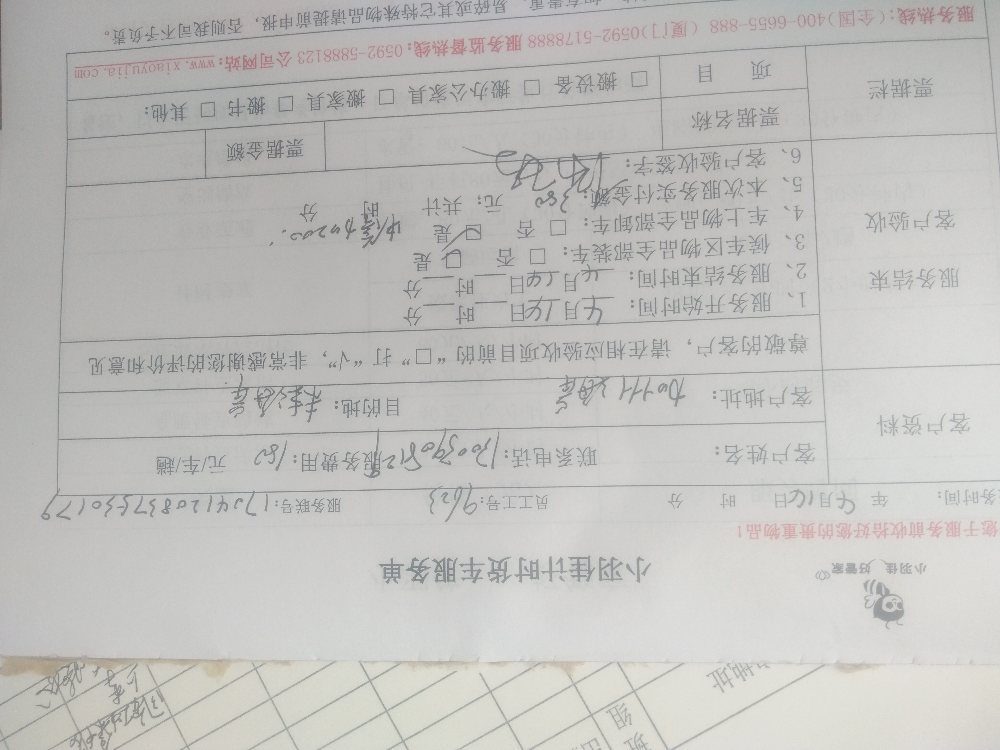 小羽佳 好管家
小羽佳计时货车服务单
您于服务前收拾好您的贵重物品!
务时间: 年 4月16日 时 分 员工工号: 9623 服务联号: 1704120837530179
客户资料
客户姓名: 联系电话: 服务费用: 180 元/车/趟
客户地址: 目的地:
尊敬的客户,请在相应验收项目前的“□”打“√”,非常感谢您的评价和意见
服务结束
客户验收
1、服务开始时间: 4月16日 时 分
2、服务结束时间: 4月16日 时 分
3、候车区物品全部装车: □ 否 □ 是
4、车上物品全部卸车: □ 否 □ 是
5、本次服务实付金额: 380 元; 共计 时 分
6、客户验收签字:
票据栏
票据名称 票据金额
项 目 □ 搬设备 □ 搬办公家具 □ 搬家具 □ 搬书 □ 其他:
服务热线:(全国)400-6655-888 (厦门)0592-5178888 服务监督热线:0592-5888123 公司网站:www.xiaoyujia.com
易碎或其它特殊物品请提前申报,否则我司不予负责。
地址
班组